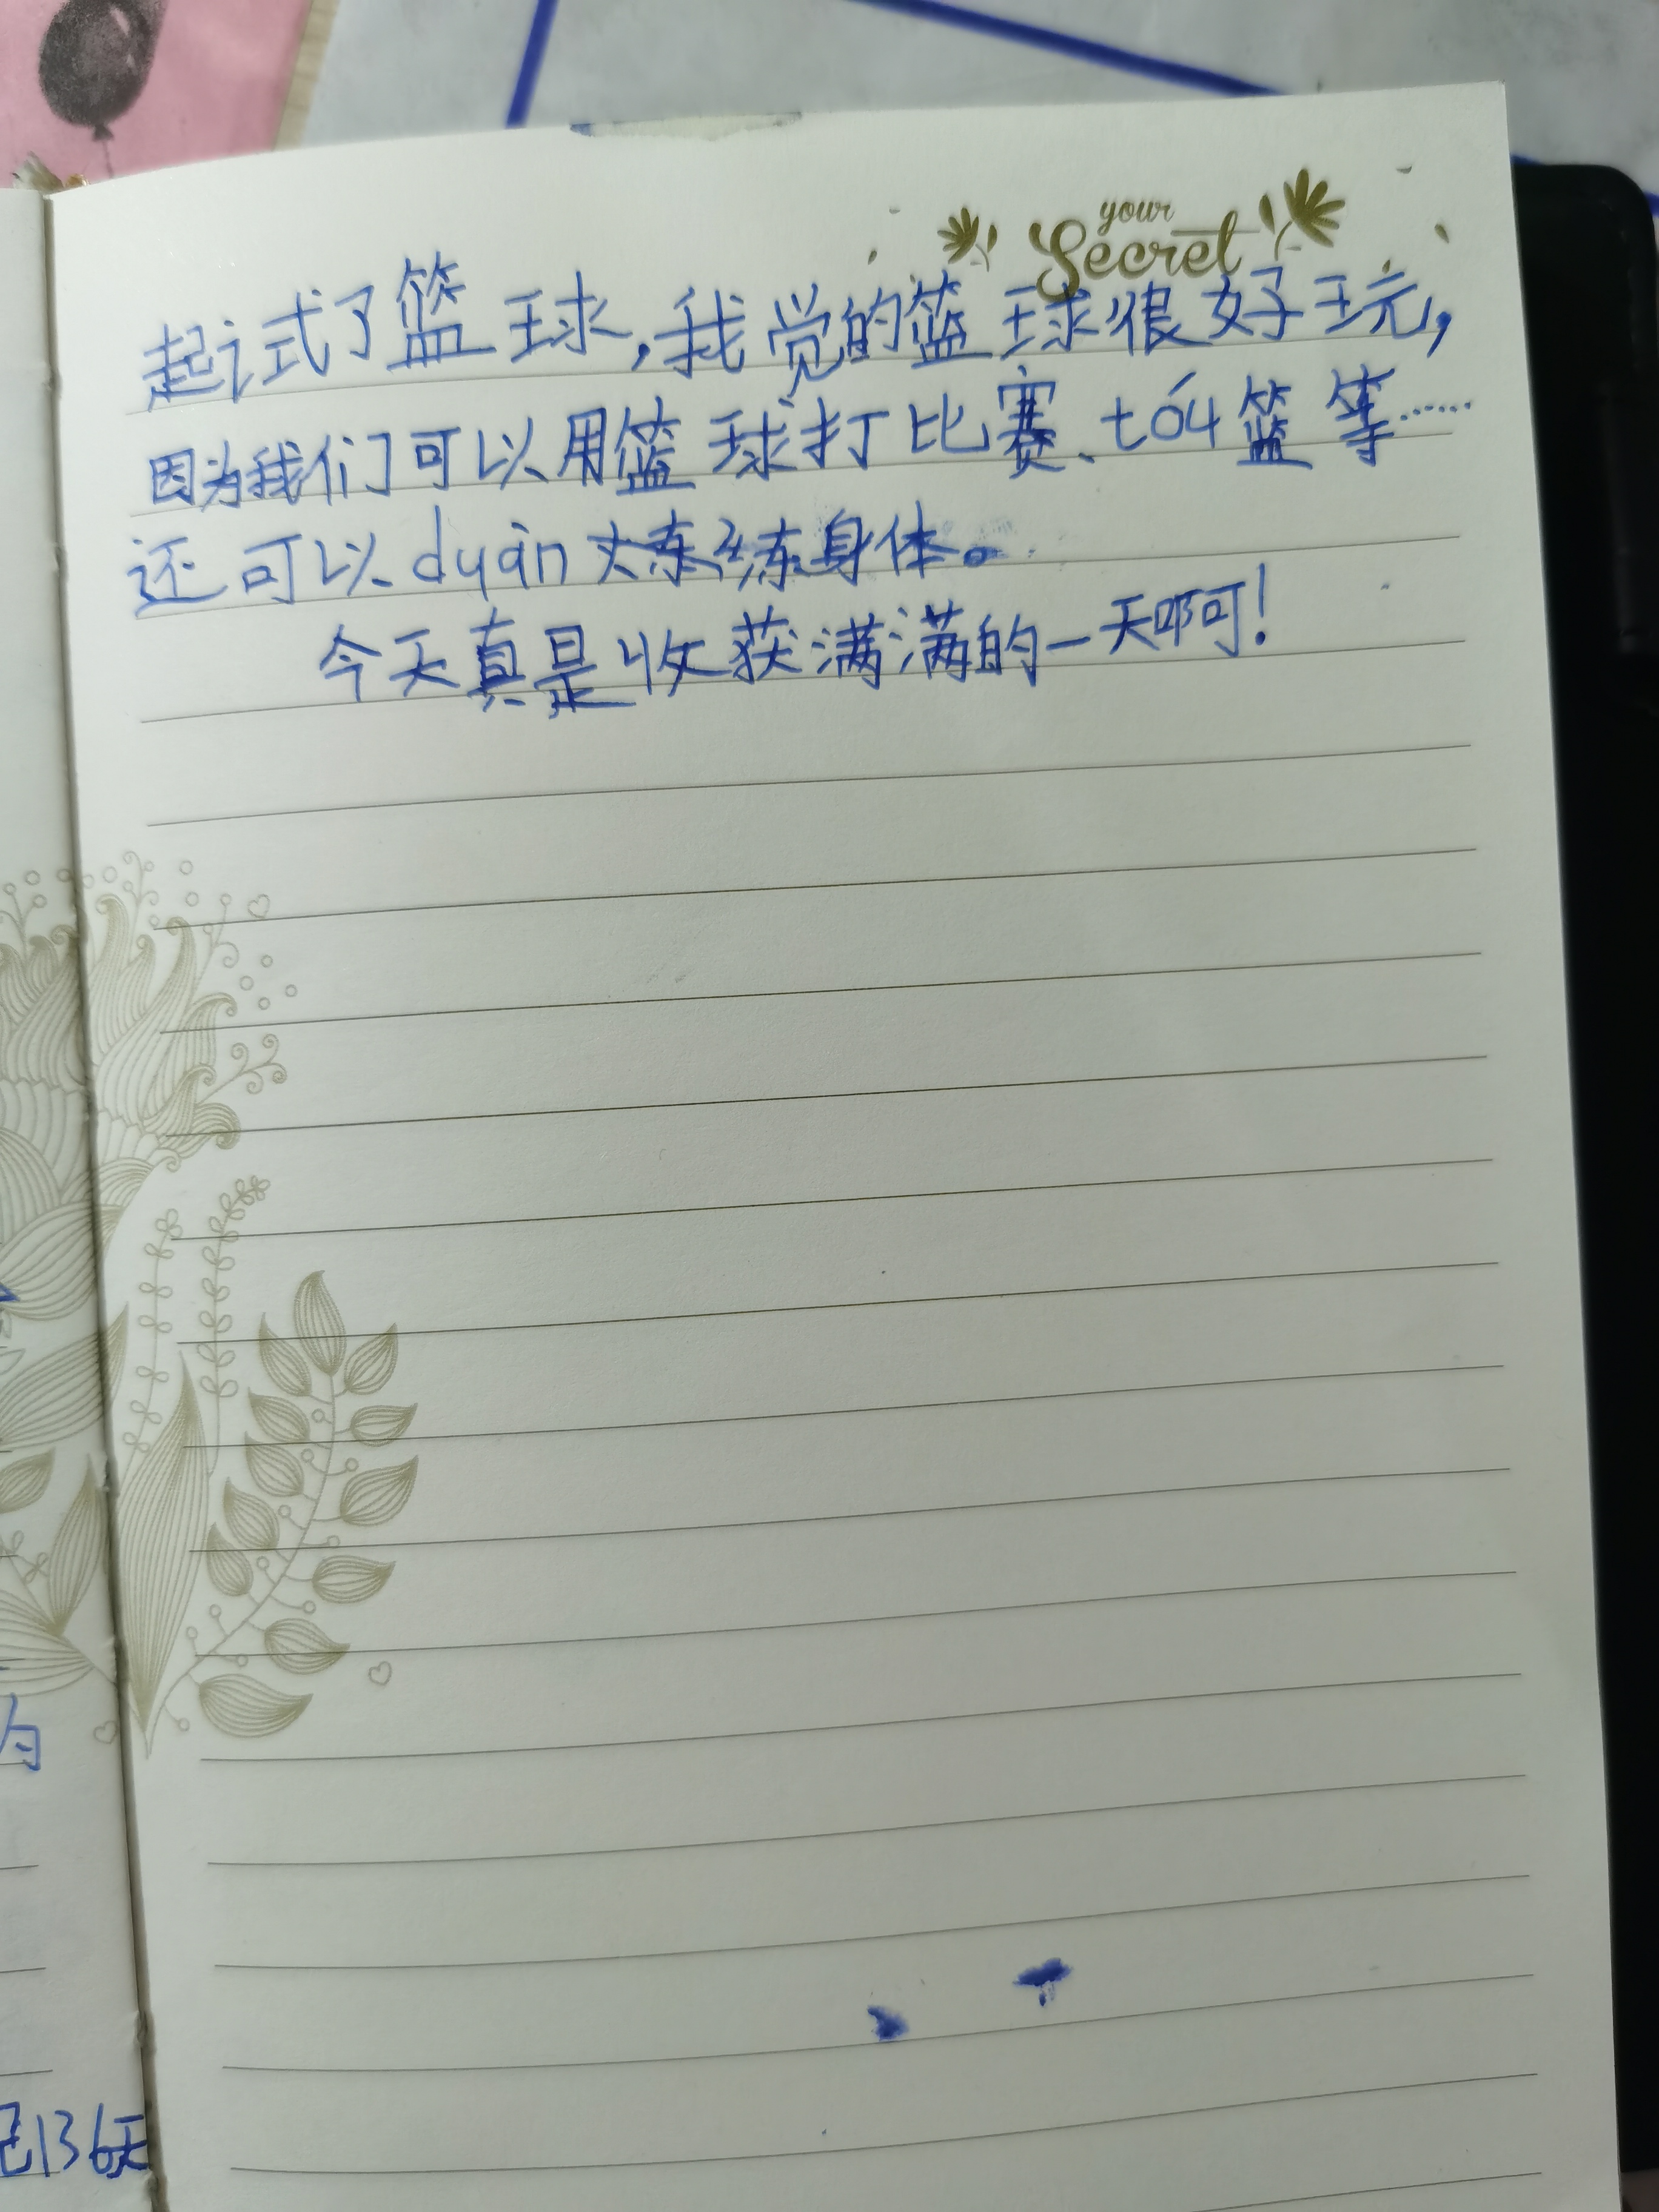 your
Secret
起试了篮球,我觉的篮球很好玩,
因为我们可以用篮球打比赛、tóu篮等……
还可以duàn炼练身体。
今天真是收获满满的一天啊!
为
记136天